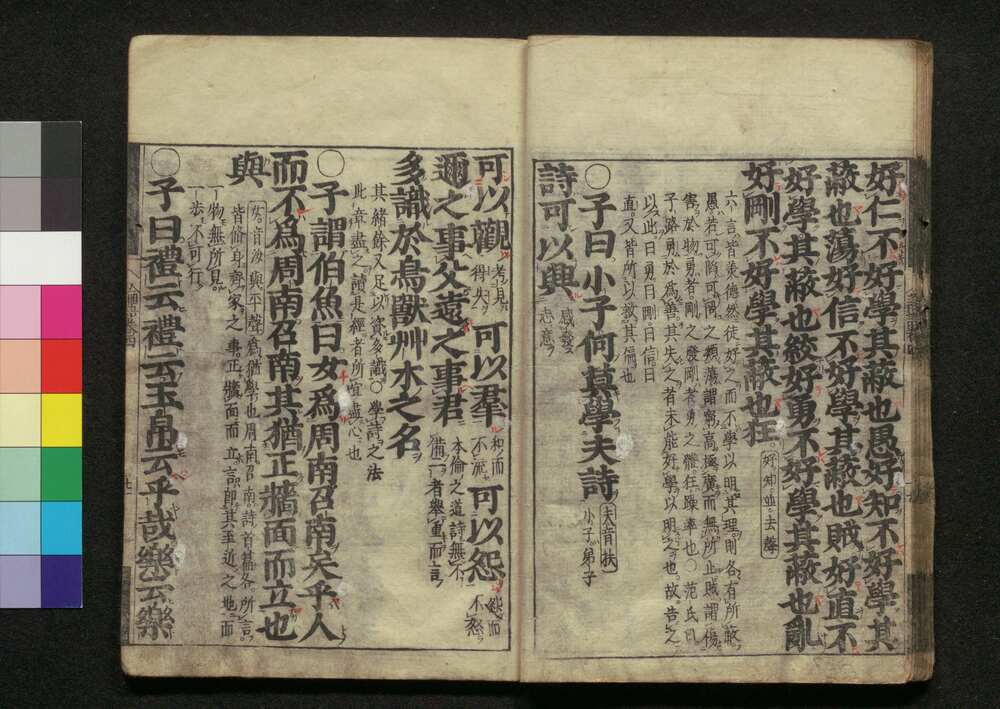 好仁不好學其蔽也愚好知不好學其
蔽也蕩好信不好學其蔽也賊好直不
好學其蔽也絞好勇不好學其蔽也亂
好剛不好學其蔽也狂 好知並去聲
六言皆美德然徒好之而不學以明其理則各有所蔽
愚若可陷可罔之類蕩謂窮高極廣而無所止賊謂傷
害於物勇者剛之發剛者勇之體狂躁率也○范氏曰
子路勇於爲善其失之者未能好學以明之也故告之
以此曰勇曰剛曰信曰
直又皆所以救其偏也
○子曰小子何莫學夫詩 夫音扶 小子弟子
詩可以興 感發志意
可以觀 考見得失 可以羣 和而不流 可以怨 怨而不怒
邇之事父遠之事君 人倫之道詩無不備二者舉重而言
多識於鳥獸艸木之名
其緒餘又足以資多識○學詩之法
此章盡之讀是經者所宜盡心也
○子謂伯魚曰女爲周南召南矣乎人
而不爲周南召南其猶正牆面而立也
與
女音汝與平聲爲猶學也周南召南詩首篇名所言
皆脩身齊家之事正牆面而立言即其至近之地而
一物無所見
一步不可行
○子曰禮云禮云玉帛云乎哉樂云樂